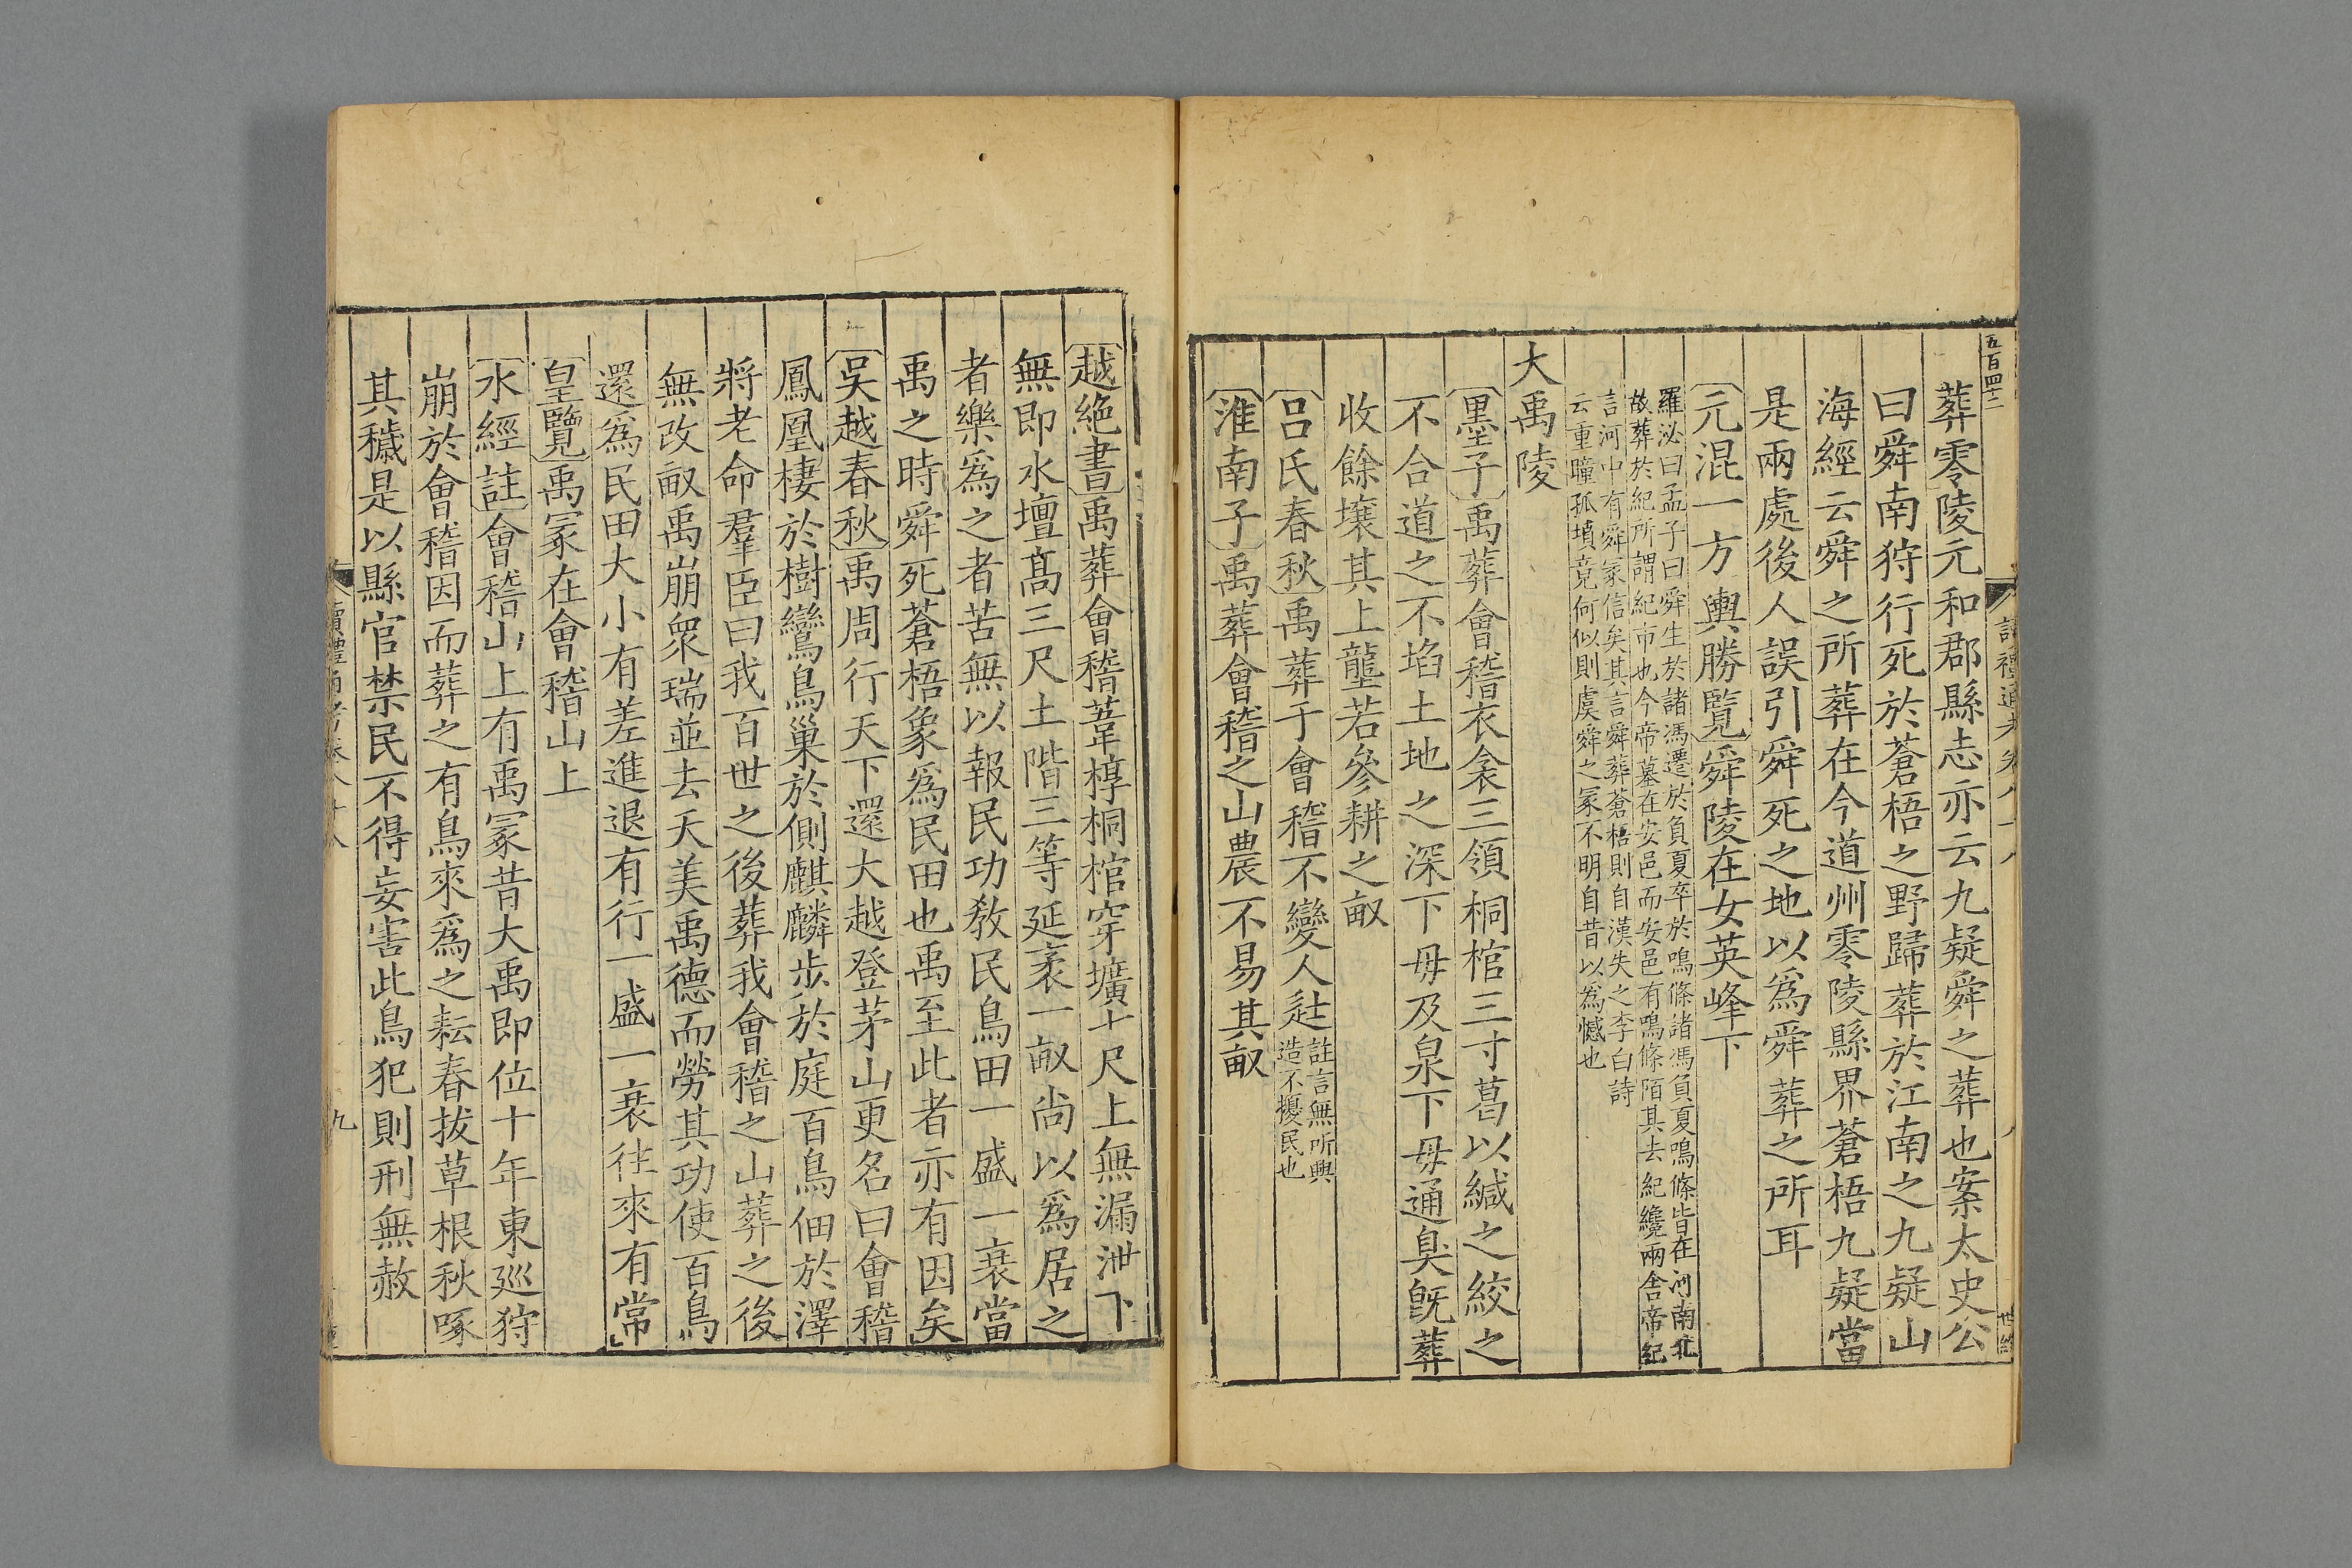 五百四十二
葬零陵元和郡縣志亦云九疑舜之葬也案太史公
曰舜南狩行死於蒼梧之野歸葬於江南之九疑山
海經云舜之所葬在今道州零陵縣界蒼梧九疑當
是兩處後人誤引舜死之地以爲舜葬之所耳
元混一方輿勝覽舜陵在女英峰下
羅泌曰孟子曰舜生於諸馮遷於負夏卒於鳴條諸馮負夏鳴條皆在河南北
故葬於紀所謂紀市也今帝墓在安邑而安邑有鳴條陌其去紀纔兩舍帝紀
言河中有舜冢信矣其言舜葬蒼梧則自漢失之李白詩
云重瞳孤墳竟何似則虞舜之冢不明自昔以爲憾也
大禹陵
墨子禹葬會稽衣衾三領桐棺三寸葛以緘之絞之
不合道之不埳土地之深下毋及泉下毋通臭旣葬
收餘壤其上壟若參耕之畝
呂氏春秋禹葬于會稽不變人徒註言無所興
造不擾民也
淮南子禹葬會稽之山農不易其畝
越絶書禹葬會稽葦椁桐棺穿壙七尺上無漏泄下
無即水壇高三尺土階三等延袤一畝尚以爲居之
者樂爲之者苦無以報民功教民鳥田一盛一衰當
禹之時舜死蒼梧象爲民田也禹至此者亦有因矣
吳越春秋禹周行天下還大越登茅山更名曰會稽
鳳凰棲於樹鸞鳥巢於側麒麟步於庭百鳥佃於澤
將老命羣臣曰我百世之後葬我會稽之山葬之後
無改畝禹崩衆瑞並去天美禹德而勞其功使百鳥
還爲民田大小有差進退有行一盛一衰往來有常
皇覽禹冢在會稽山上
水經註會稽山上有禹冢昔大禹即位十年東廵狩
崩於會稽因而葬之有鳥來爲之耘春拔草根秋啄
其穢是以縣官禁民不得妄害此鳥犯則刑無赦
讀禮通考卷八十八
九